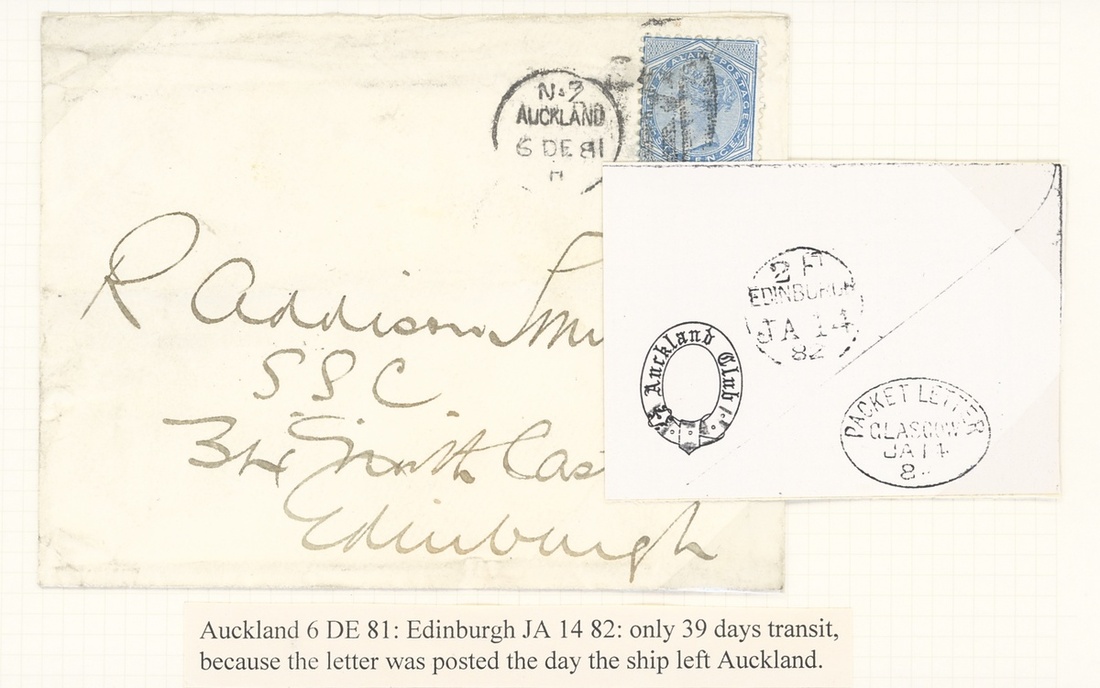 NEW ZEALAND POSTAGE
PENCE
N.Z
AUCKLAND
6 DE 81
H
R Addison Smi
S.S.C.
34 North Cas
Edinburgh
2 H
EDINBURGH
JA 14
82
Auckland Club
PACKET LETTER
GLASGOW
JA 14
8
Auckland 6 DE 81: Edinburgh JA 14 82: only 39 days transit,
because the letter was posted the day the ship left Auckland.